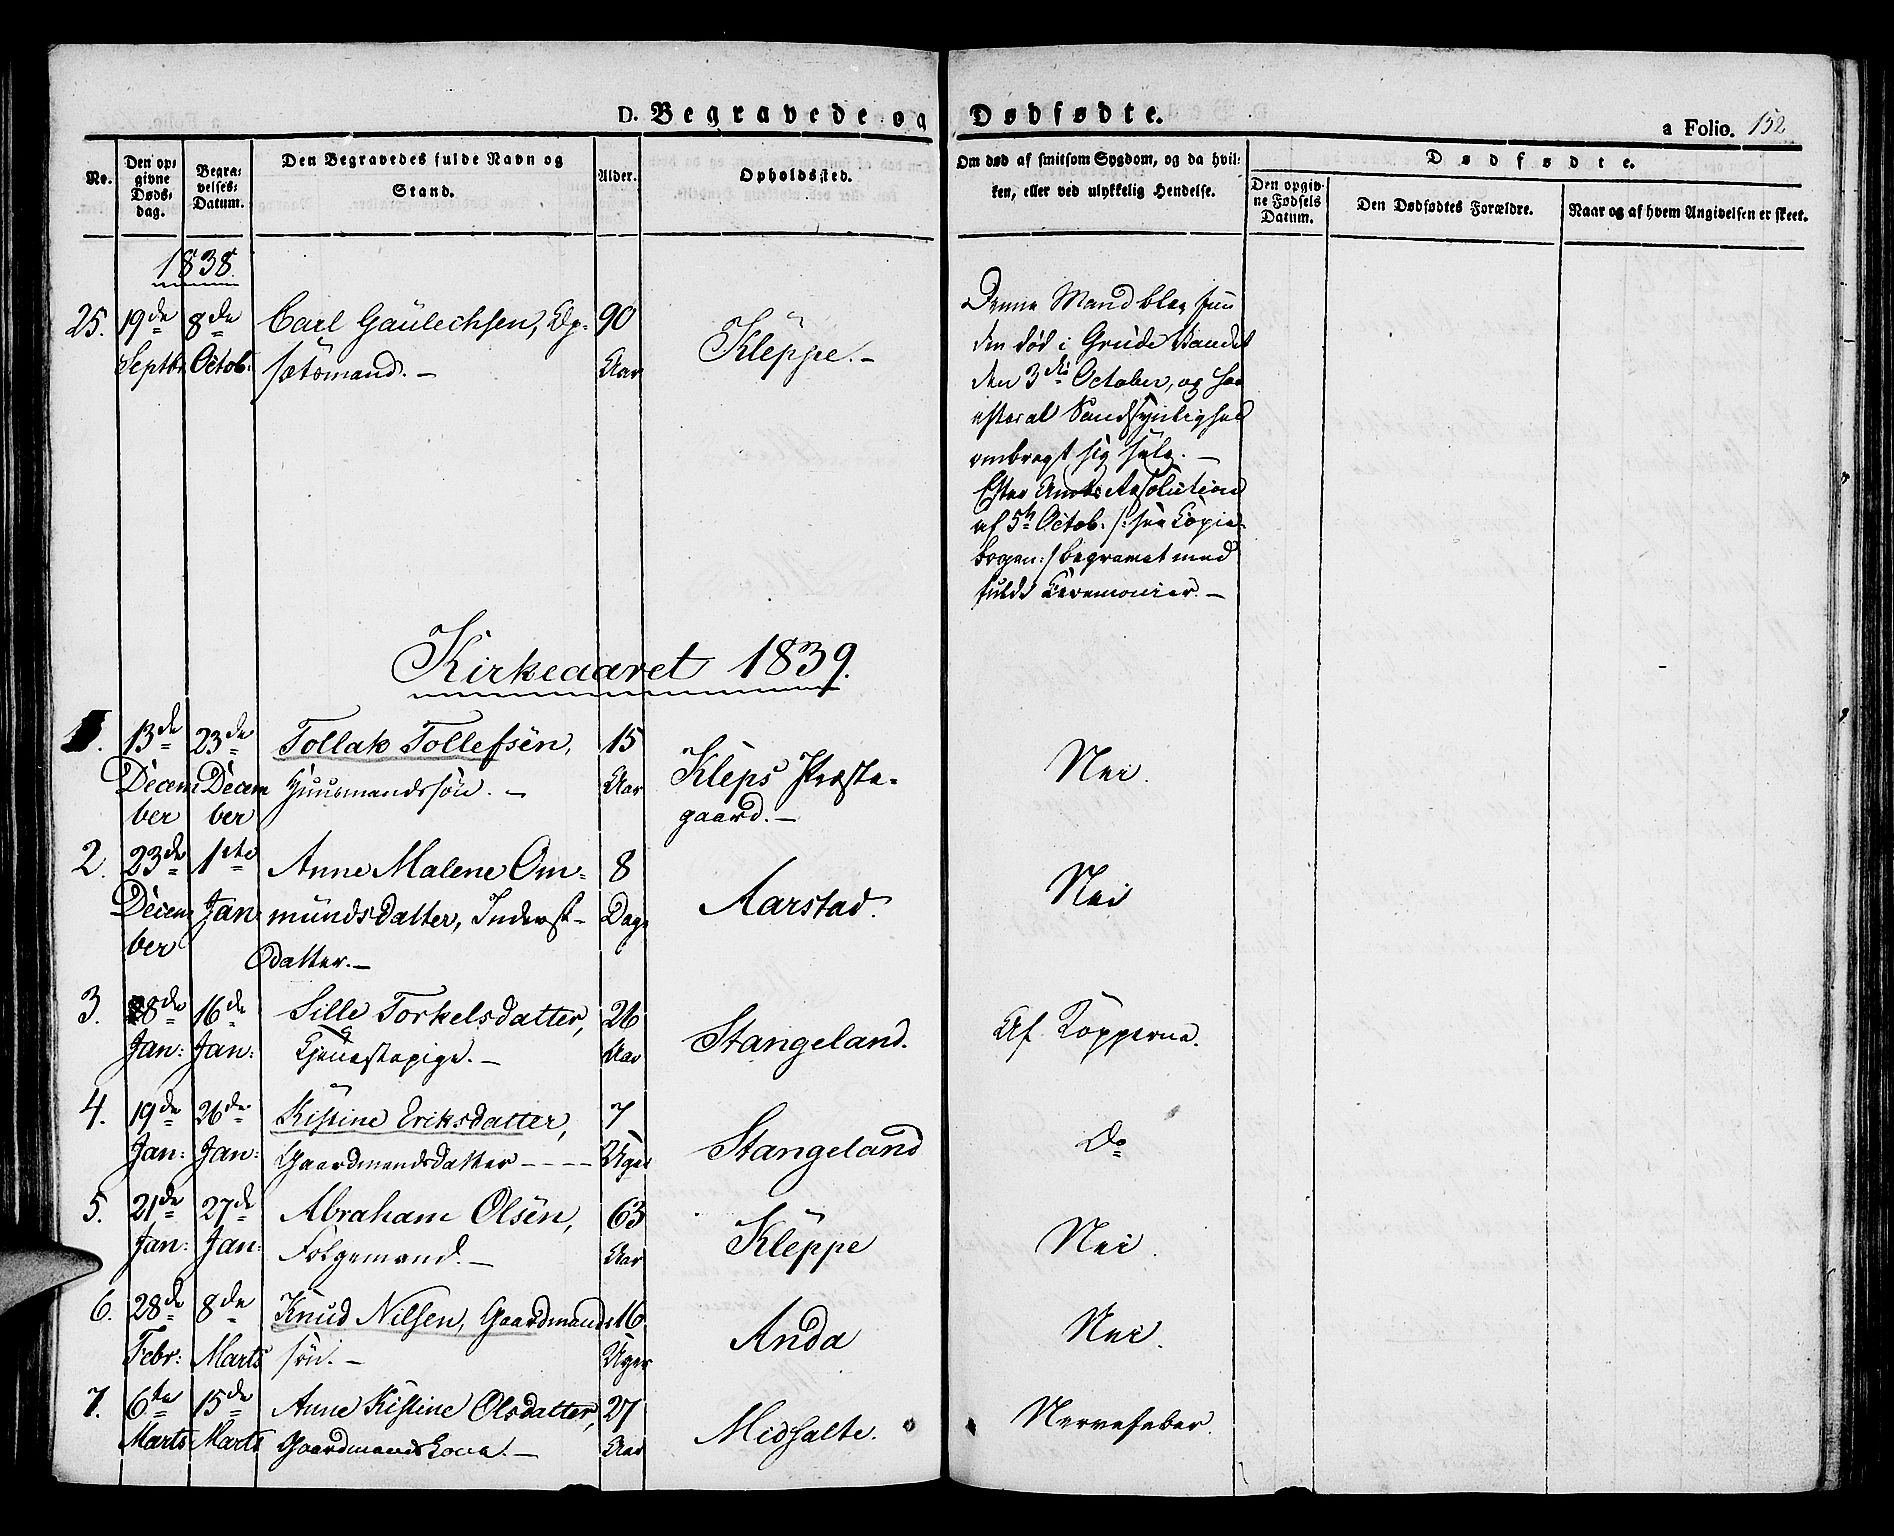 D. Begravede og Dødfødte.
a Folio. 152
No.
Den opgivne Dødsdag.
Begravelses-Datum.
Den Begravedes fulde Navn og Stand.
Alder.
Opholdssted.
Om død af smitsom Sygdom, og da hvilken, eller ved ulykkelig Hendelse.
Dødfødte.
Den opgivne Fødsels Datum.
Den Dødfødtes Forældre.
Naar og af hvem Angivelsen er skeet.
1838.
25. 19de Septbr. 8de Octob: Carl Gaülechsen, Op-
sætsmand. –
90 Aar
Kleppe. –
Denne Mand blev fun
den død i Grude Vandet
den 3die October, og har
efter al Sandsynlighed
ombragt sig selv. –
Efter Amts Resolution
af 5te Octob. /: see Copie
bogen :/ begravet med
fulde Ceremonier. –
Kirkeaaret 1839.
1. 13de December 23de December Tollak Tollefsen,
Huusmandssøn. –
15 Aar
Kleps Præste-
gaard. –
Nei.
2. 23de December 1ste Jan: Anne Malene Om-
mundsdatter, Inderst-
datter. –
8 Dage
Aarstad.
Nei
3. 8de Jan: 16de Jan: Sille Torkelsdatter,
Tjenestepige. –
26 Aar
Stangeland.
Af Kopperne.
4. 19de Jan: 26de Jan: Kistine Eriksdatter,
Gaardmandsdatter - - - -
7 Uger
Stangeland
Do
5. 21de Jan: 27de Jan: Abraham Olsen,
Folgemand. –
63 Aar
Kleppe
Nei.
6. 28de Febr: 8de Marts Knud Nilsen, Gaardmands
søn. –
16 Uger
Anda
Nei.
7. 6te Marts 15de Marts Anne Kistine Olsdatter,
Gaardmandskone. –
27 Aar
Midhalte.
Nervefeber.